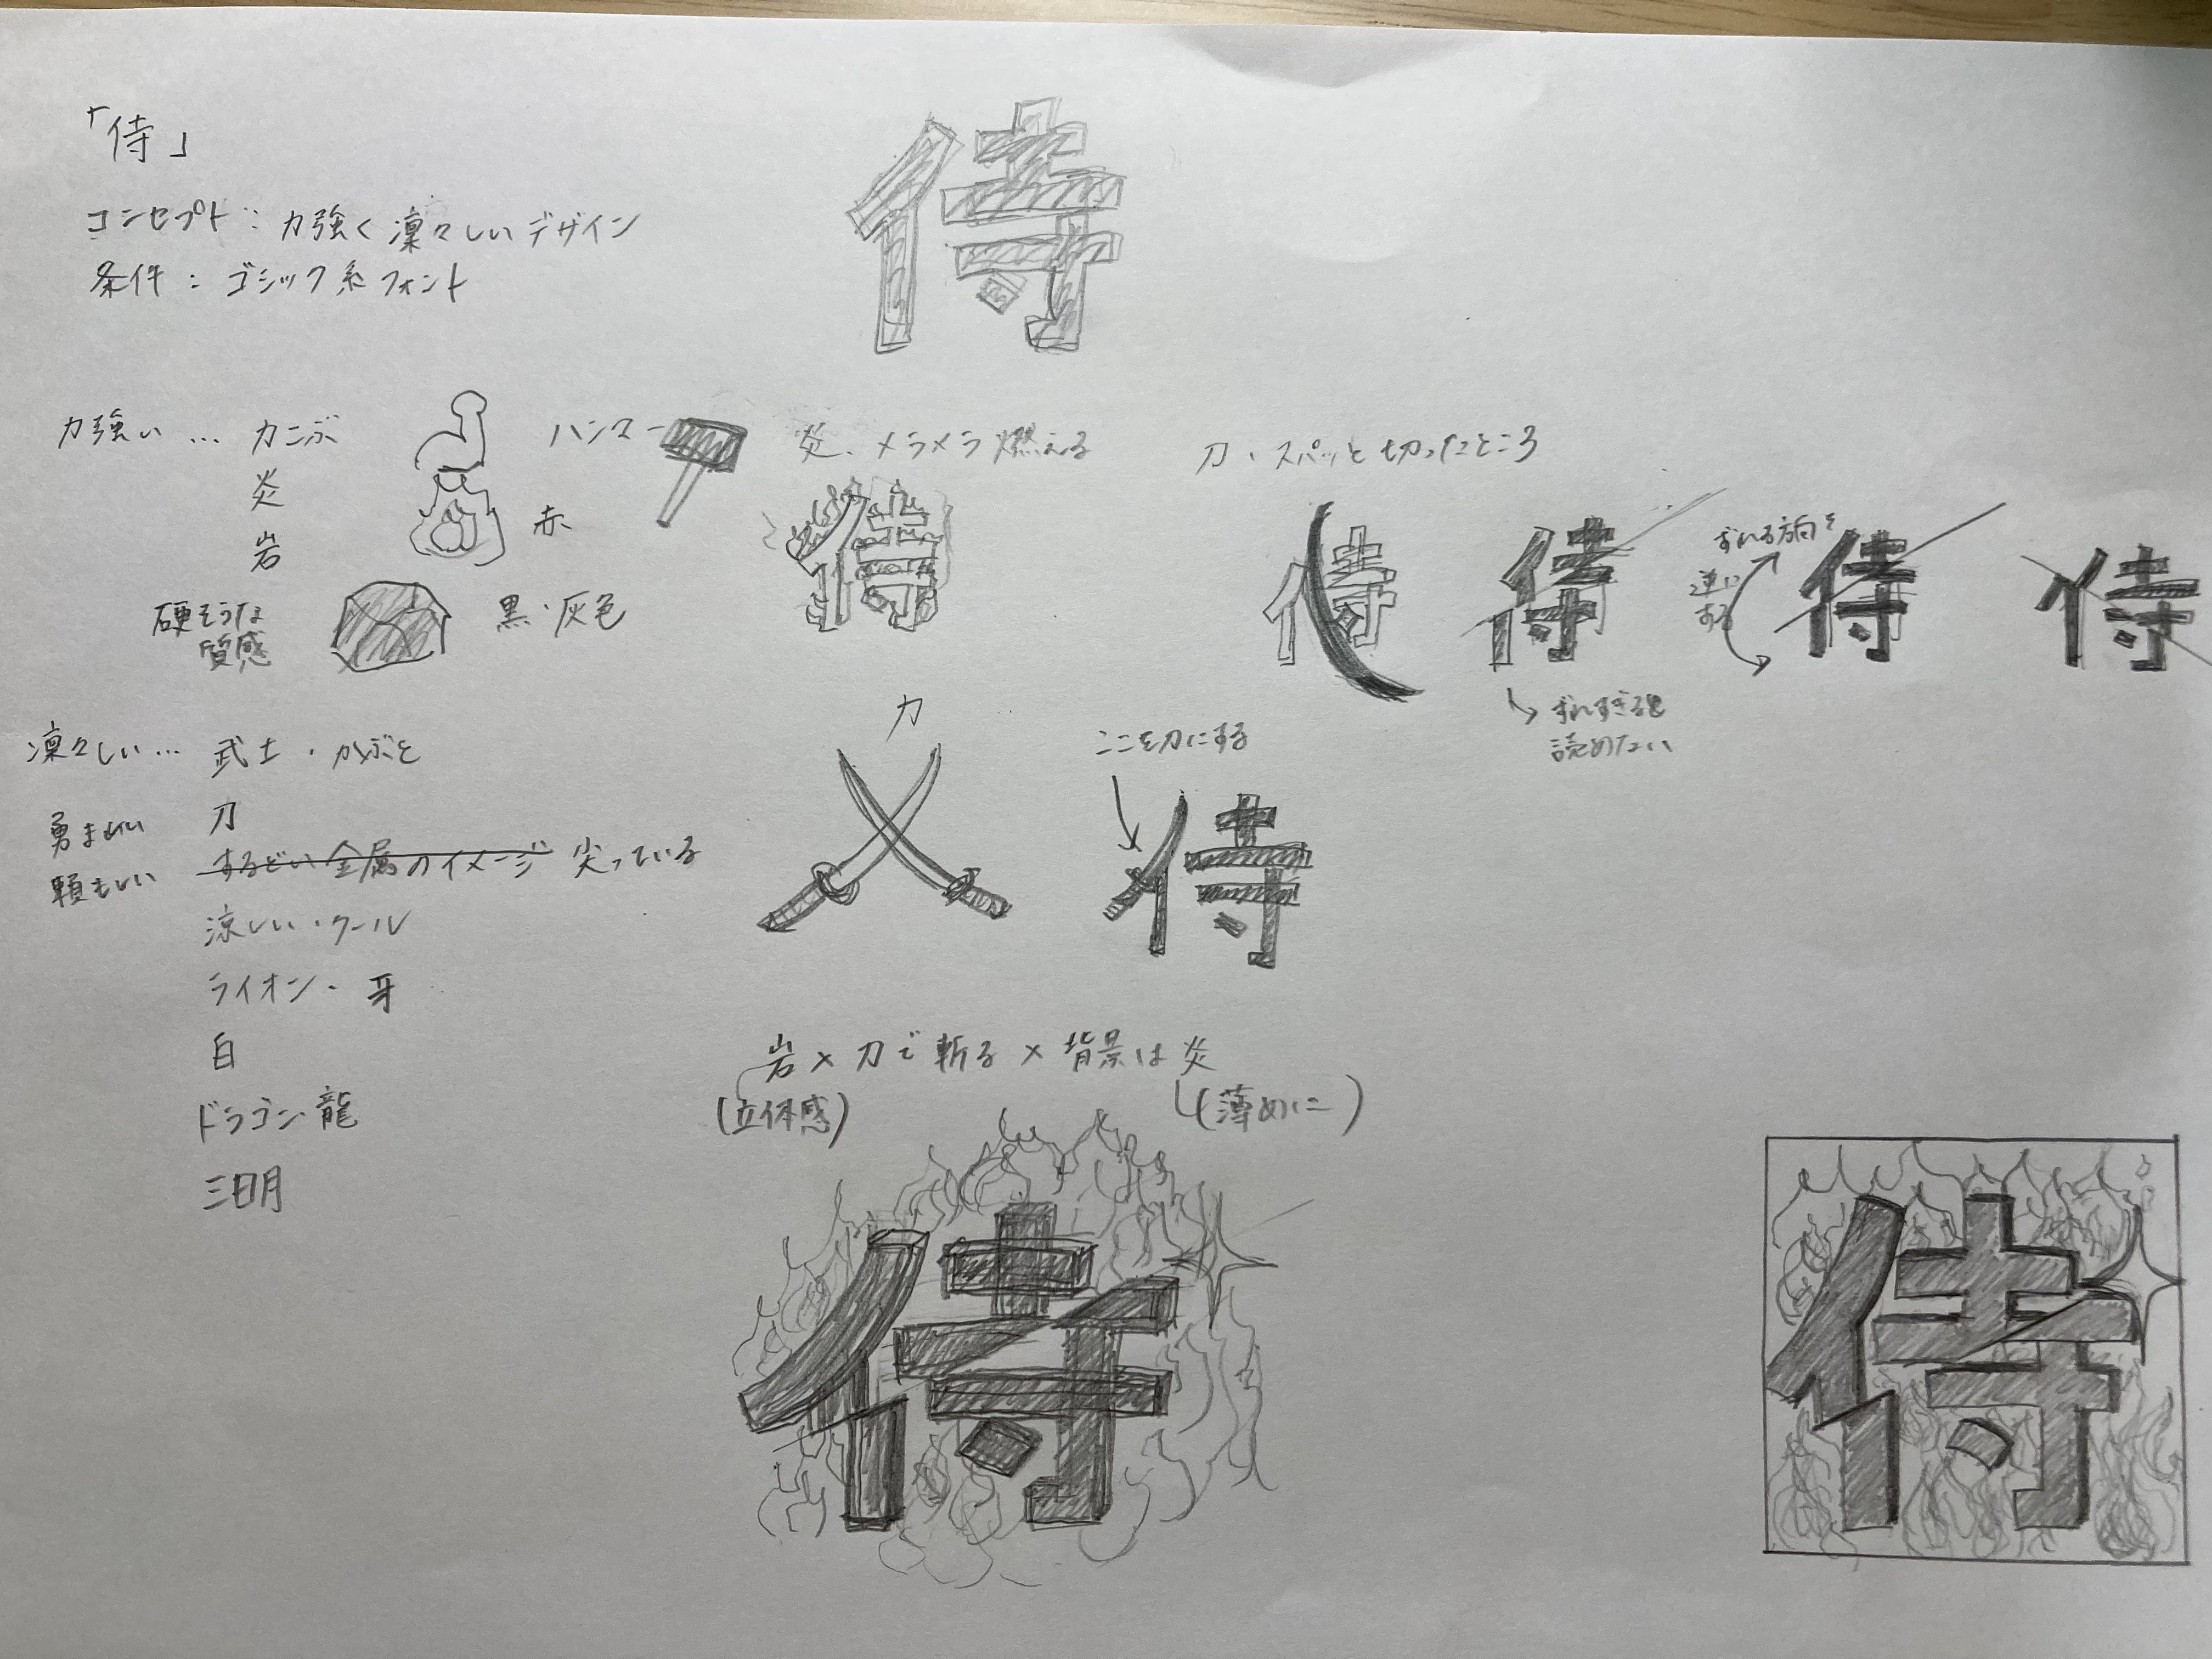 「侍」
コンセプト：力強く凛々しいデザイン
条件：ゴシック系フォント
侍
力強い… カニぶ
炎
岩
硬そうな
質感
ハンマー
赤
黒・灰色
炎、メラメラ燃える
侍
刀、スパッと切ったところ
侍 侍 侍 侍
ずれる方向を
逆に
する
ずれすぎると
読めない
凛々しい… 武士・かぶと
刀
勇ましい
頼もしい
するどい金属のイメージ 尖っている
涼しい・クール
ライオン・牙
白
ドラゴン・龍
三日月
刀
ここを刀にする
侍
岩×刀で斬る×背景は炎
(立体感)
(薄めに)
侍
侍